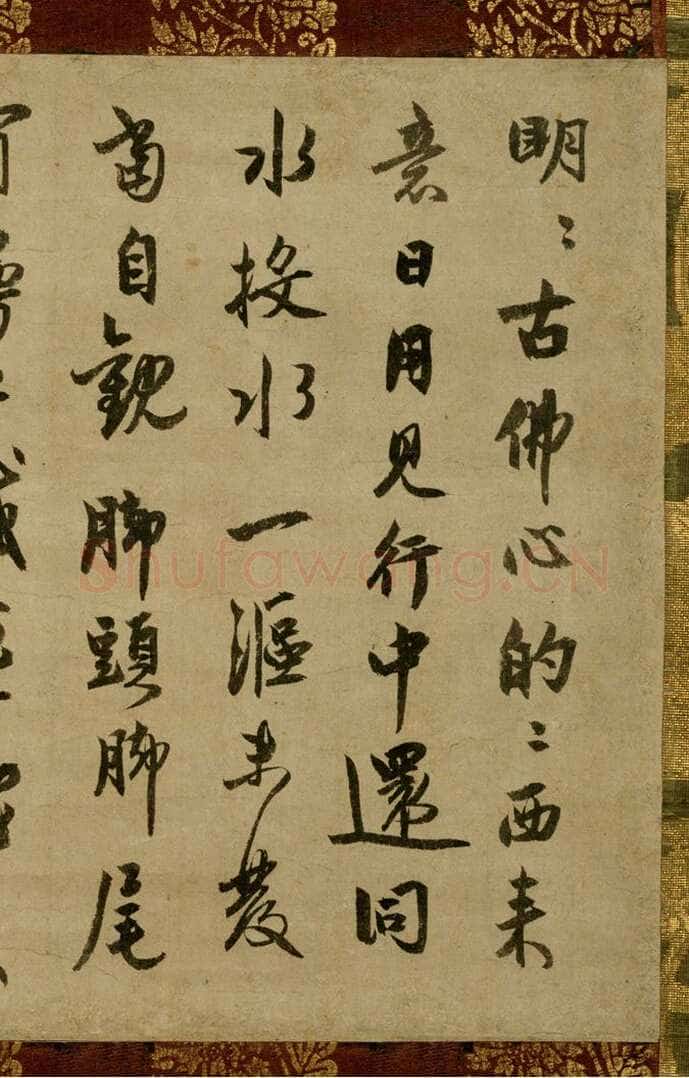 明〻古佛心的〻西来
意日用見行中還同
水投水一漚未發
當自観脚頭脚尾
Shufawang.CN